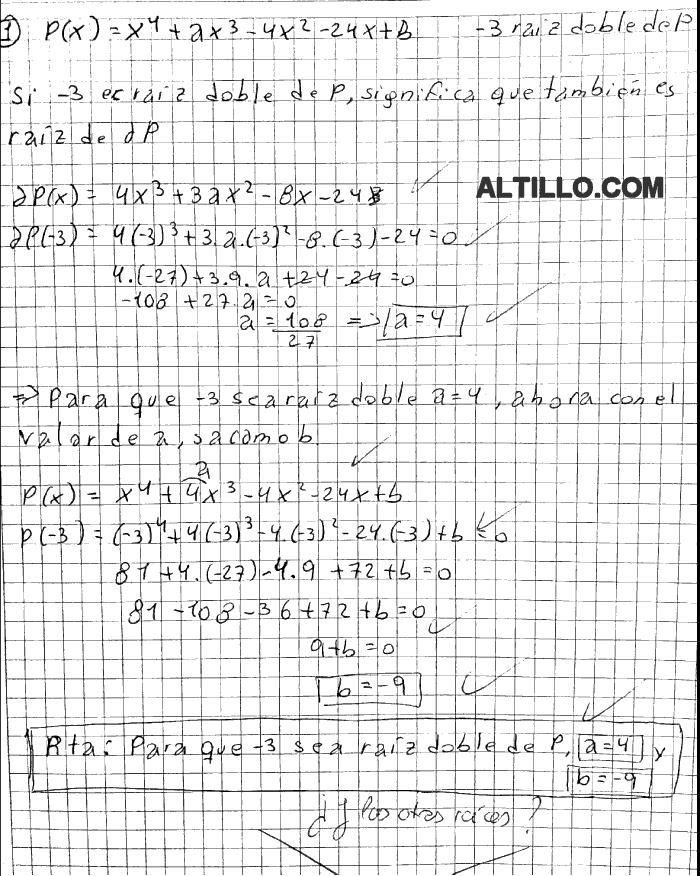 1) P(x) = x⁴ + ax³ - 4x² - 24x + b    -3 raiz doble de P
Si -3 es raíz doble de P, significa que también es
raíz de ∂P
∂P(x) = 4x³ + 3ax² - 8x - 24
ALTILLO.COM
∂P(-3) = 4(-3)³ + 3.a.(-3)² - 8.(-3) - 24 = 0
4.(-27) + 3.9.a + 24 - 24 = 0
-108 + 27.a = 0
a = 108/27 => a = 4
=> Para que -3 sea raíz doble a = 4, ahora con el
valor de a, sacamo b
a
P(x) = x⁴ + 4x³ - 4x² - 24x + b
P(-3) = (-3)⁴ + 4(-3)³ - 4.(-3)² - 24.(-3) + b = 0
81 + 4.(-27) - 4.9 + 72 + b = 0
81 - 108 - 36 + 72 + b = 0
9 + b = 0
b = -9
Rta: Para que -3 sea raíz doble de P, a = 4 y
b = -9
¿Y las otras raíces?